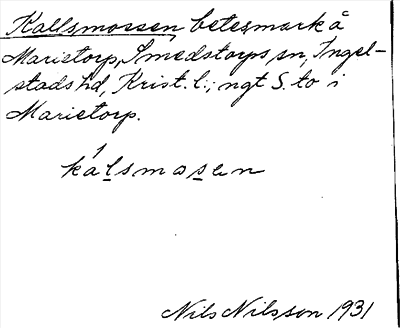 Kallsmossen, betesmark å
Marietorp, Smedstorps sn, Ingel-
stads hd, Krist. l.; ngt S. to i
Marietorp.
kálsmosen
Nils Nilsson 1931